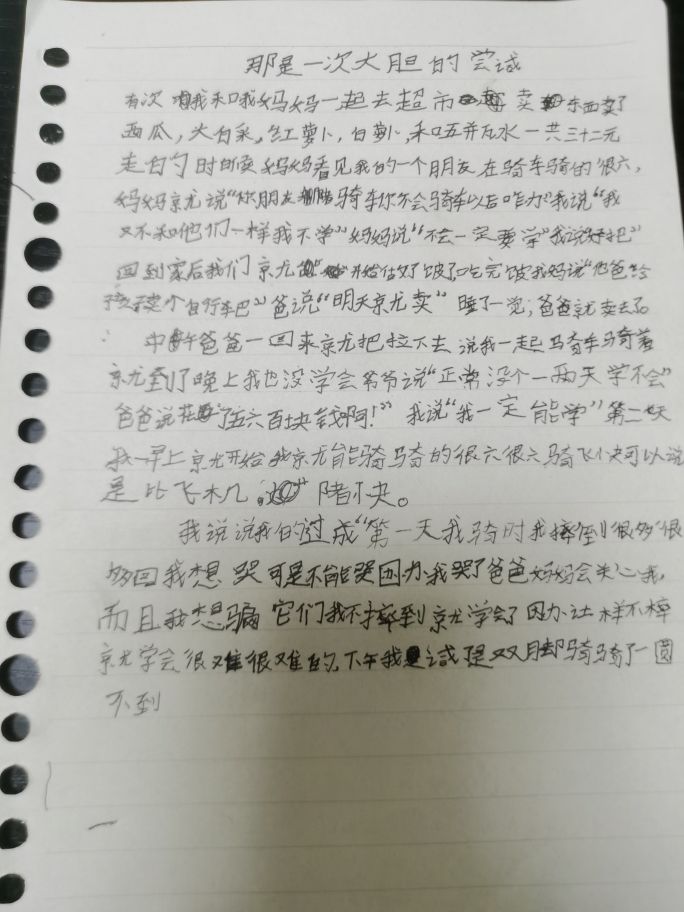 那是一次大胆的尝试
有次我和我妈妈一起去超市卖东西卖了
西瓜，大白采，红萝卜，白萝卜，和五并瓦水一共三十二元
走的时候妈妈看见我的一个朋友在骑车骑的很六，
妈妈京尤说“你朋友骑车你不会骑车以后咋办”我说“我
又不和他们一样我不学”妈妈说“不会一定要学”我说“好把”
回到家后我们京尤开始做饭了吃完饭我妈说“他爸给
孩买个自行车巴”爸说“明天京尤卖”睡了一觉；爸爸就卖去了。
中午爸爸一回来京尤把拉下去说我一起骑车骑着
京尤到了晚上我也没学会爷爷说“正常没个一两天学不会”
爸爸说花了五六百块钱啊！”我说“我一定能学”第二天
我一早上京尤开始我京尤能骑骑的很六很六骑飞小夬可以说
是比飞木几，陼小夬。
我说说我的过成“第一天我骑时我摔倒很够很
够回我想哭可是不能哭因办我哭了爸爸妈妈会关心我，
而且我想骗它们我不摔到京尤学会了因办让样不摔
京尤学会很难很难的，下午我試是双脚骑骑了一圆
不到